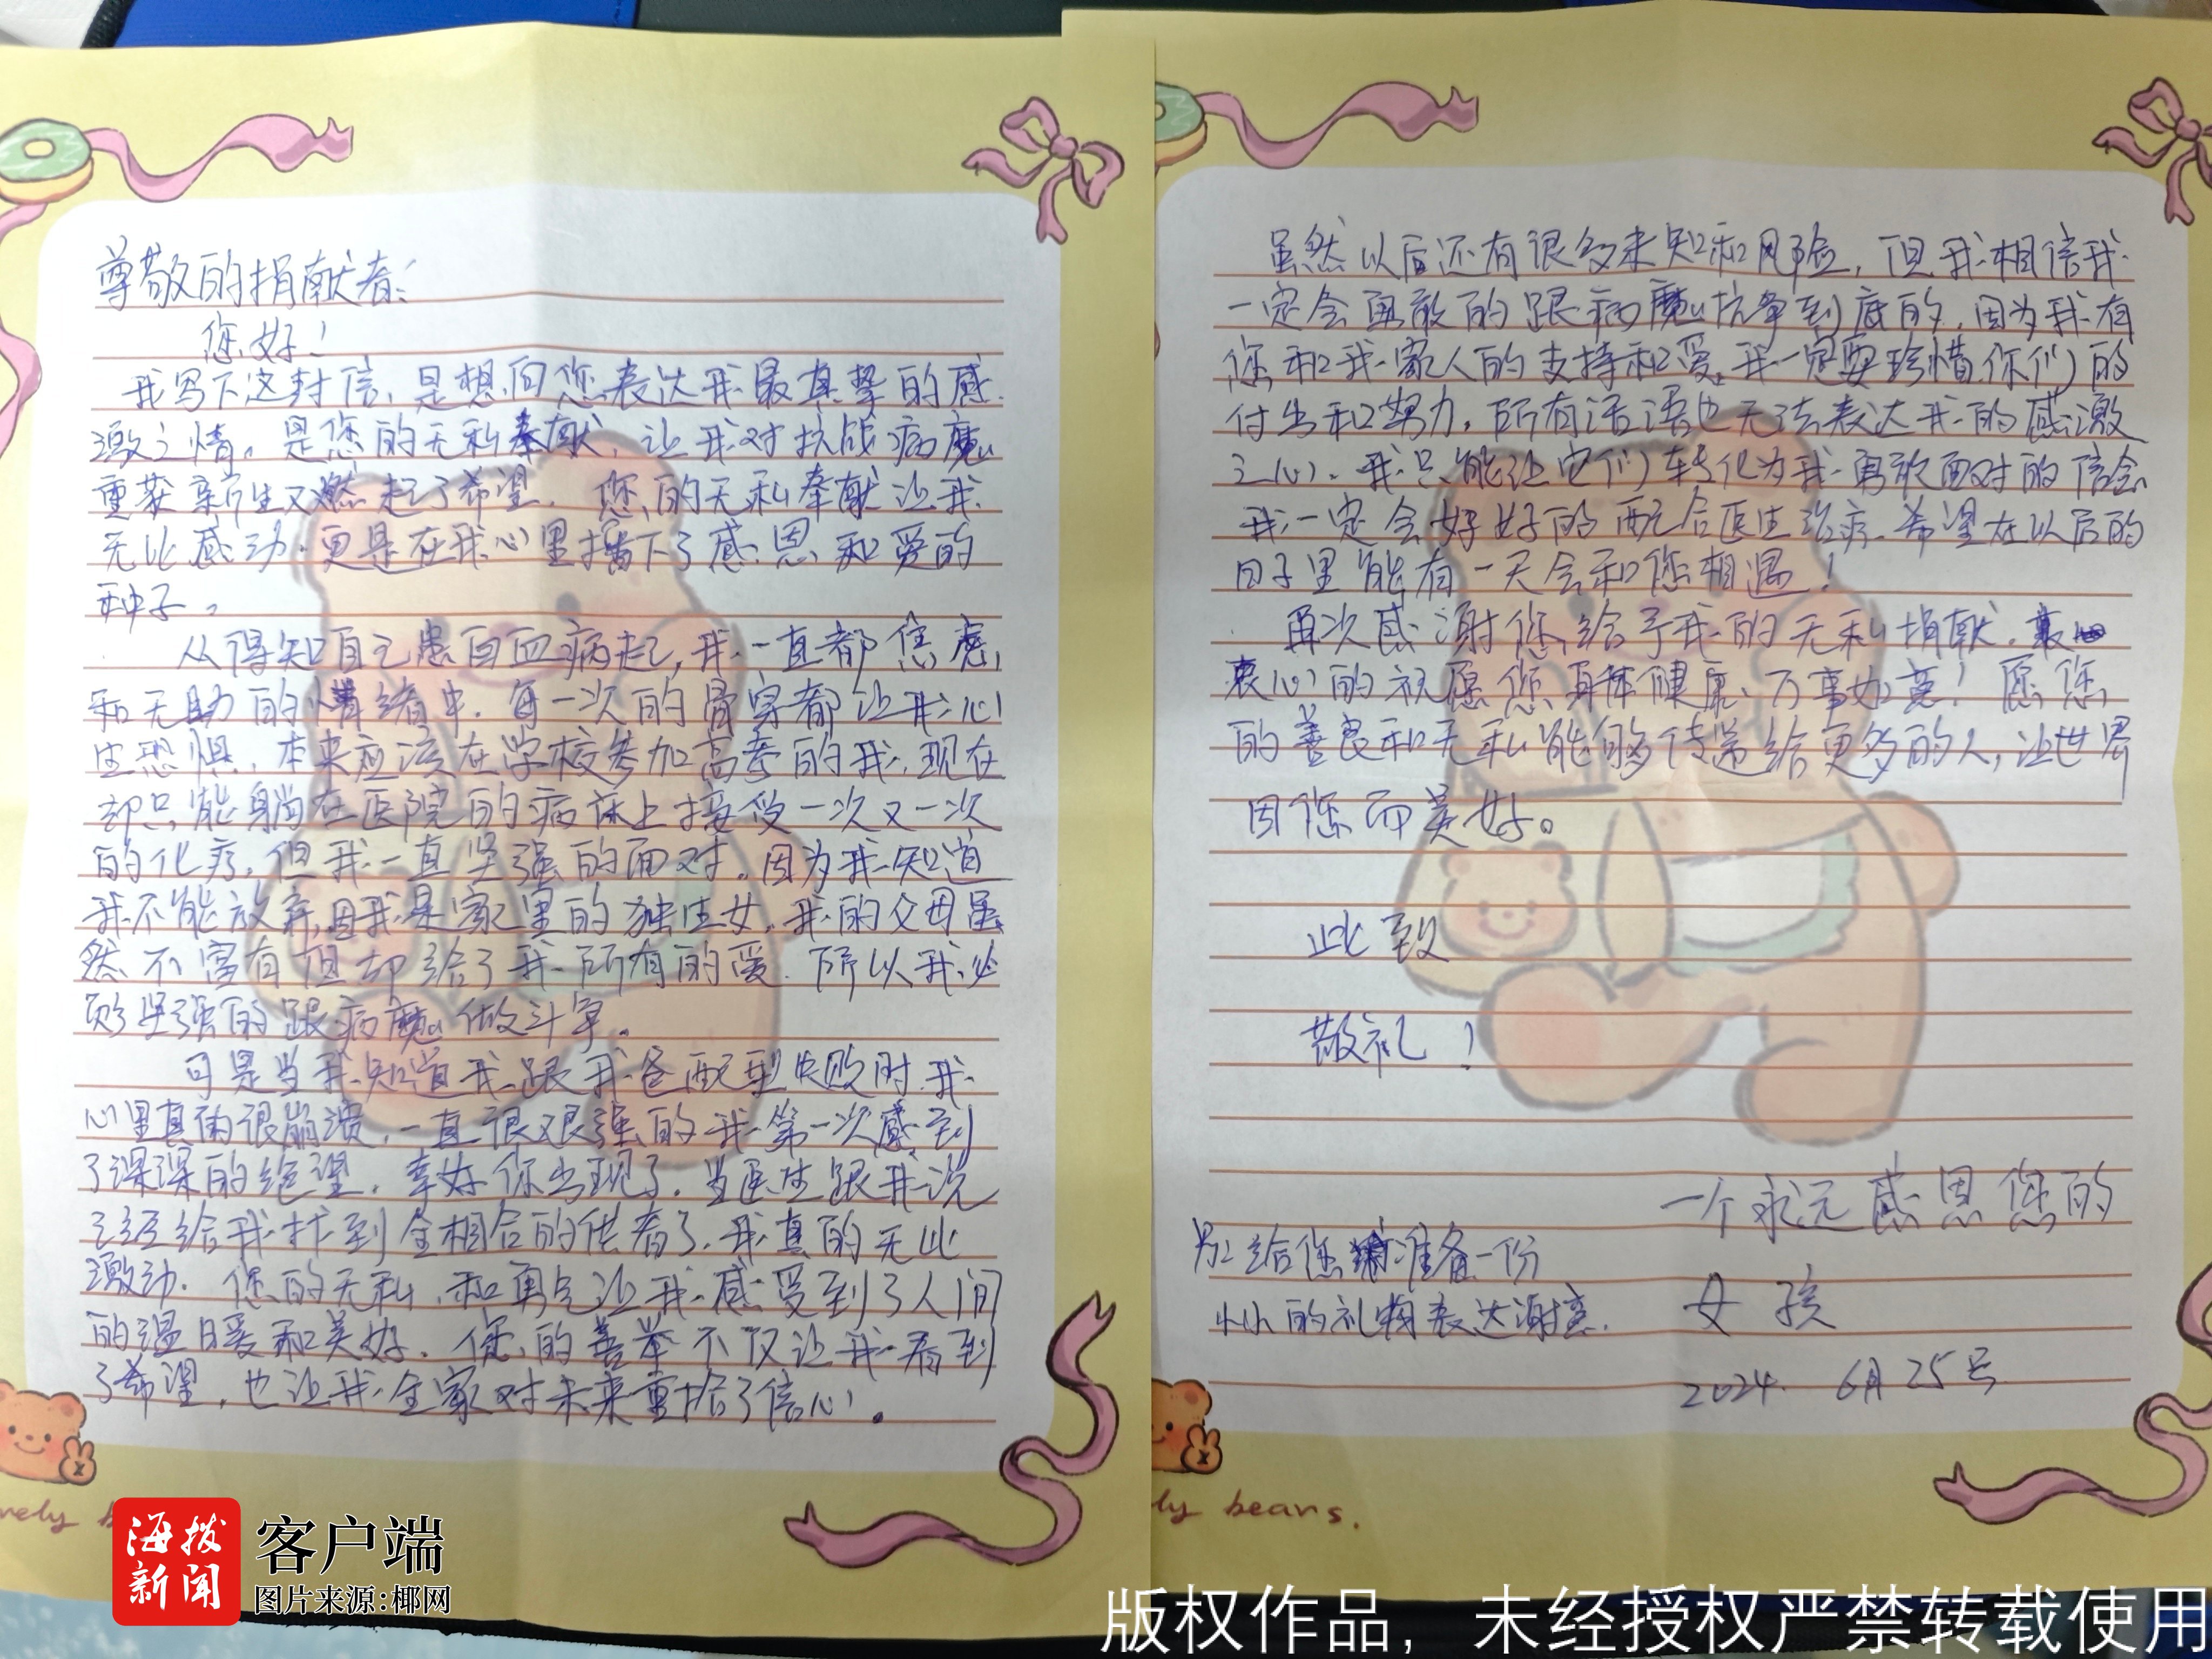 尊敬的捐献者：
您好！
我写下这封信，是想向您表达我最真挚的感
激之情。是您的无私奉献，让我对抗战病魔
重获新生又燃起了希望。您的无私奉献让我
无比感动，更是在我心里播下了感恩和爱的
种子。
从得知自己患白血病起，我一直都焦虑
和无助的情绪中。每一次的骨穿都让我心
生恐惧，本来应该在学校参加高考的我，现在
却只能躺在医院的病床上接受一次又一次
的化疗，但我一直坚强的面对。因为我知道
我不能放弃，因我是家里的独生女，我的父母虽
然不富有但却给了我所有的爱。所以我必
须坚强的跟病魔做斗争。
可是当我知道我跟我爸配型失败时，我
心里真的很崩溃，一直很坚强的我第一次感到
了深深的绝望，幸好你出现了。当医生跟我说
已经给我找到全相合的供者了，我真的无比
激动。您的无私，和勇气让我感受到了人间
的温暖和美好。您的善举不仅让我看到
了希望，也让我全家对未来重拾了信心。
虽然以后还有很多未知和风险，但我相信我
一定会勇敢的跟病魔抗争到底的，因为我有
您和我家人的支持和爱。我一定要珍惜你们的
付出和努力，所有话语也无法表达我的感激
之心，我只能让它们转化为我勇敢面对的信念
我一定会好好的配合医生治疗，希望在以后的
日子里能有一天会和您相遇！
再次感谢您给予我的无私捐献，
衷心的祝愿您身体健康、万事如意！愿您
的善良和无私能够传递给更多的人，让世界
因您而美好。
此致
敬礼！
一个永远感恩您的
女孩
2024. 6月25号
另给您准备一份
小小的礼物表达谢意.
ly beans.
海拔
新闻
客户端
图片来源:椰网
版权作品，未经授权严禁转载使用